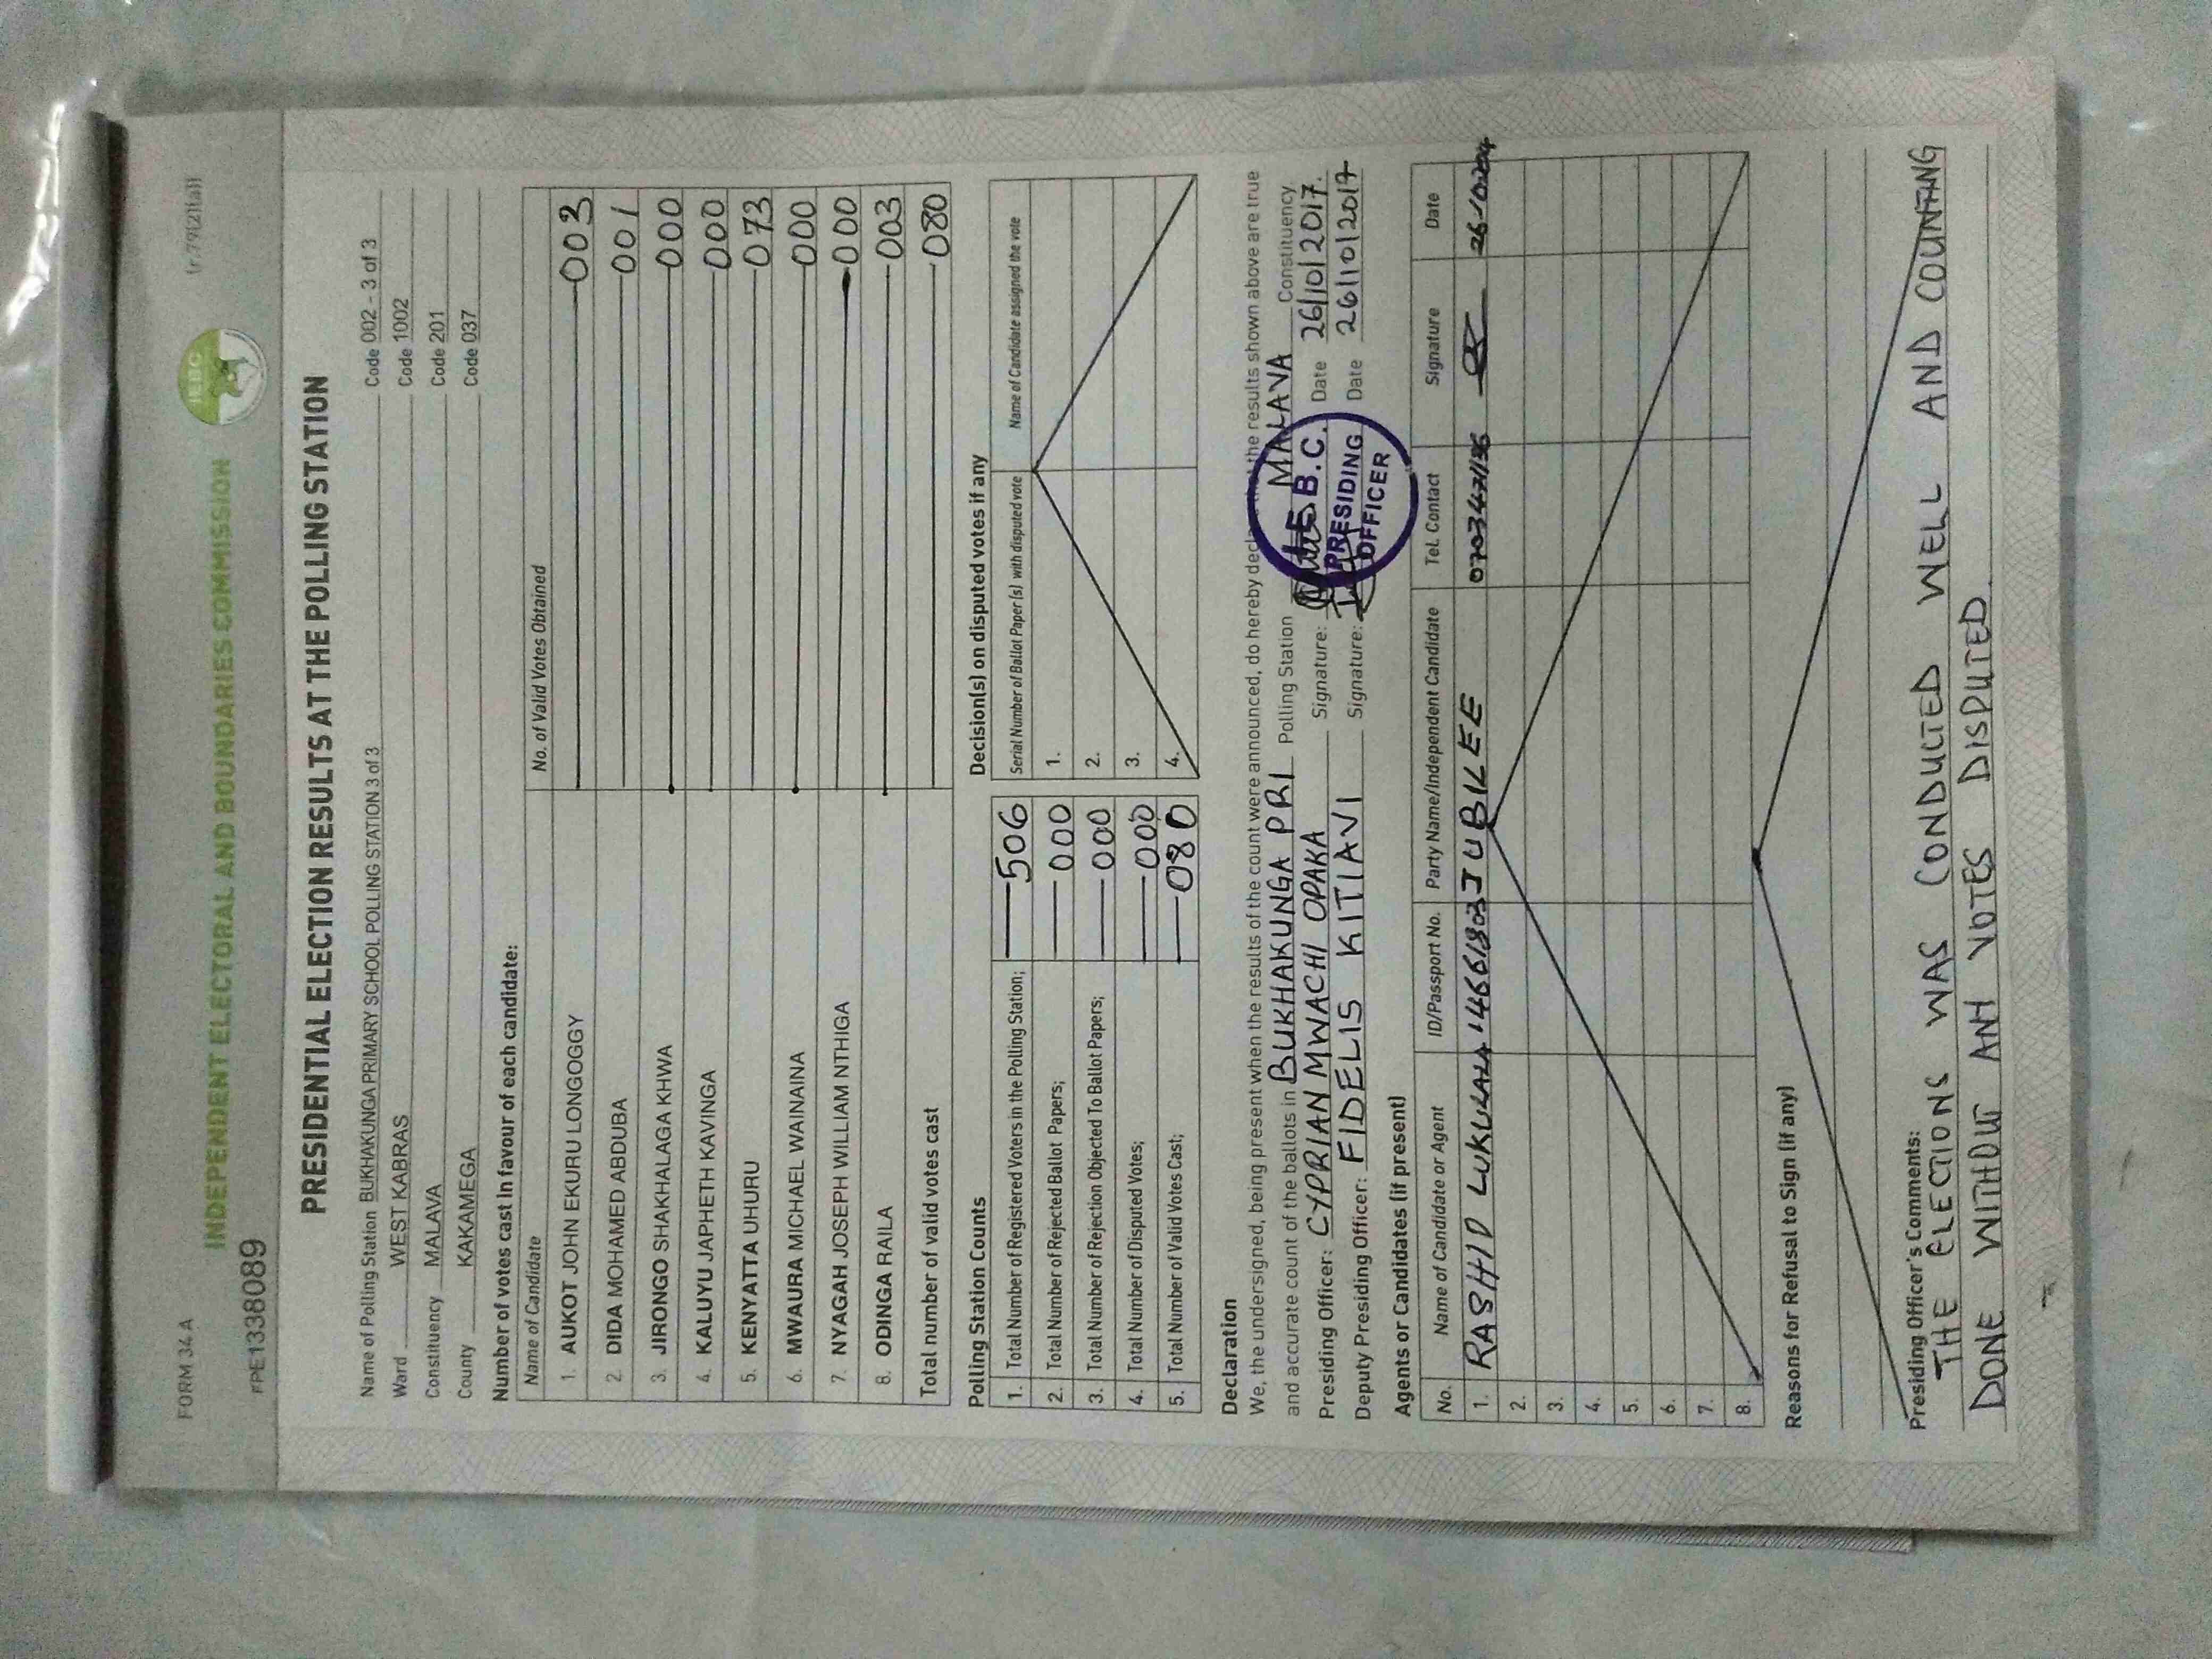 FORM 34 A
(r.79(2)(a))
INDEPENDENT ELECTORAL AND BOUNDARIES COMMISSION
IEBC
PE1338089
PRESIDENTIAL ELECTION RESULTS AT THE POLLING STATION
Name of Polling Station BUKHAKUNGA PRIMARY SCHOOL POLLING STATION 3 of 3 Code 002 - 3 of 3
Ward WEST KABRAS Code 1002
Constituency MALAVA Code 201
County KAKAMEGA Code 037
Number of votes cast in favour of each candidate:
Name of Candidate No. of Valid Votes Obtained
1. AUKOT JOHN EKURU LONGOGGY 003
2. DIDA MOHAMED ABDUBA 001
3. JIRONGO SHAKHALAGA KHWA 000
4. KALUYU JAPHETH KAVINGA 000
5. KENYATTA UHURU 073
6. MWAURA MICHAEL WAINAINA 000
7. NYAGAH JOSEPH WILLIAM NTHIGA 000
8. ODINGA RAILA 003
Total number of valid votes cast 080
Polling Station Counts
1. Total Number of Registered Voters in the Polling Station; 506
2. Total Number of Rejected Ballot Papers; 000
3. Total Number of Rejection Objected To Ballot Papers; 000
4. Total Number of Disputed Votes; 000
5. Total Number of Valid Votes Cast; 080
Decision(s) on disputed votes if any
Serial Number of Ballot Paper (s) with disputed vote Name of Candidate assigned the vote
1.
2.
3.
4.
Declaration
We, the undersigned, being present when the results of the count were announced, do hereby the results shown above are true
and accurate count of the ballots in BUKHAKUNGA PRI Polling Station MALAVA Constituency.
Presiding Officer: CYPRIAN MWACHI OPAKA Signature: Date 26/10/2017.
Deputy Presiding Officer: FIDELIS KITIAVI Signature: Date 26/10/2017
B.C.
PRESIDING
OFFICER
Agents or Candidates (if present)
No. Name of Candidate or Agent ID/Passport No. Party Name/Independent Candidate Tel. Contact Signature Date
1. RASHID JUBILEE
2.
3.
4.
5.
6.
7.
8.
Reasons for Refusal to Sign (if any)
Presiding Officer's Comments:
THE ELECTIONS WAS CONDUCTED WELL AND COUNTING
DONE WITHOUT ANY VOTES DISPUTED.